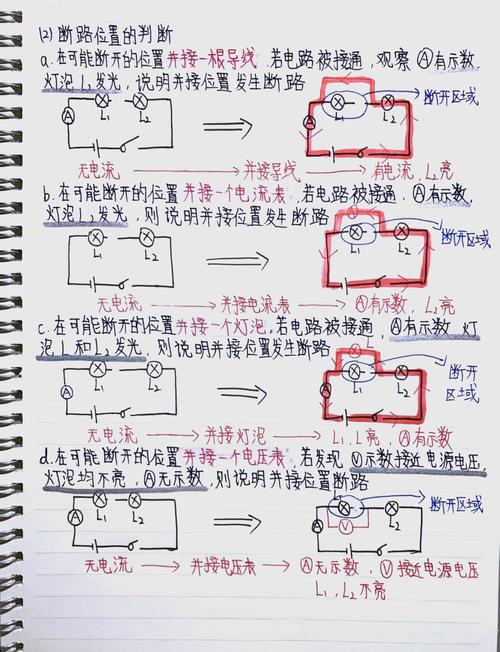 (2) 断路位置的判断
a. 在可能断开的位置并接一根导线, 若电路被接通, 观察Ⓐ有示数,
灯泡L₂发光, 说明并接位置发生断路
A L₁ L₂ L₁ L₂ 断开区域
无电流 → 并接导线 → 有电流, L₂亮
b. 在可能断开的位置并接一个电流表, 若电路被接通, Ⓐ有示数,
灯泡L₂发光, 则说明并接位置发生断路
L₁ L₂ L₁ L₂ 断开区域
无电流 → 并接电流表 → Ⓐ有示数, L₂亮
c. 在可能断开的位置并接一个灯泡, 若电路被接通, Ⓐ有示数 灯
泡L和L₂发光, 则说明并接位置发生断路
A L₁ L₂ L L₁ L₂ 断开
区域
无电流 → 并接灯泡 → L₁, L亮, Ⓐ有示数
d. 在可能断开的位置并接一个电压表, 若发现Ⓥ示数接近电源电压,
灯泡均不亮, Ⓐ无示数, 则说明并接位置断路
A L₁ L₂ A V L₂ 断开区域
无电流 → 并接电压表 → Ⓐ无示数, Ⓥ接近电源电压
L₁, L₂不亮